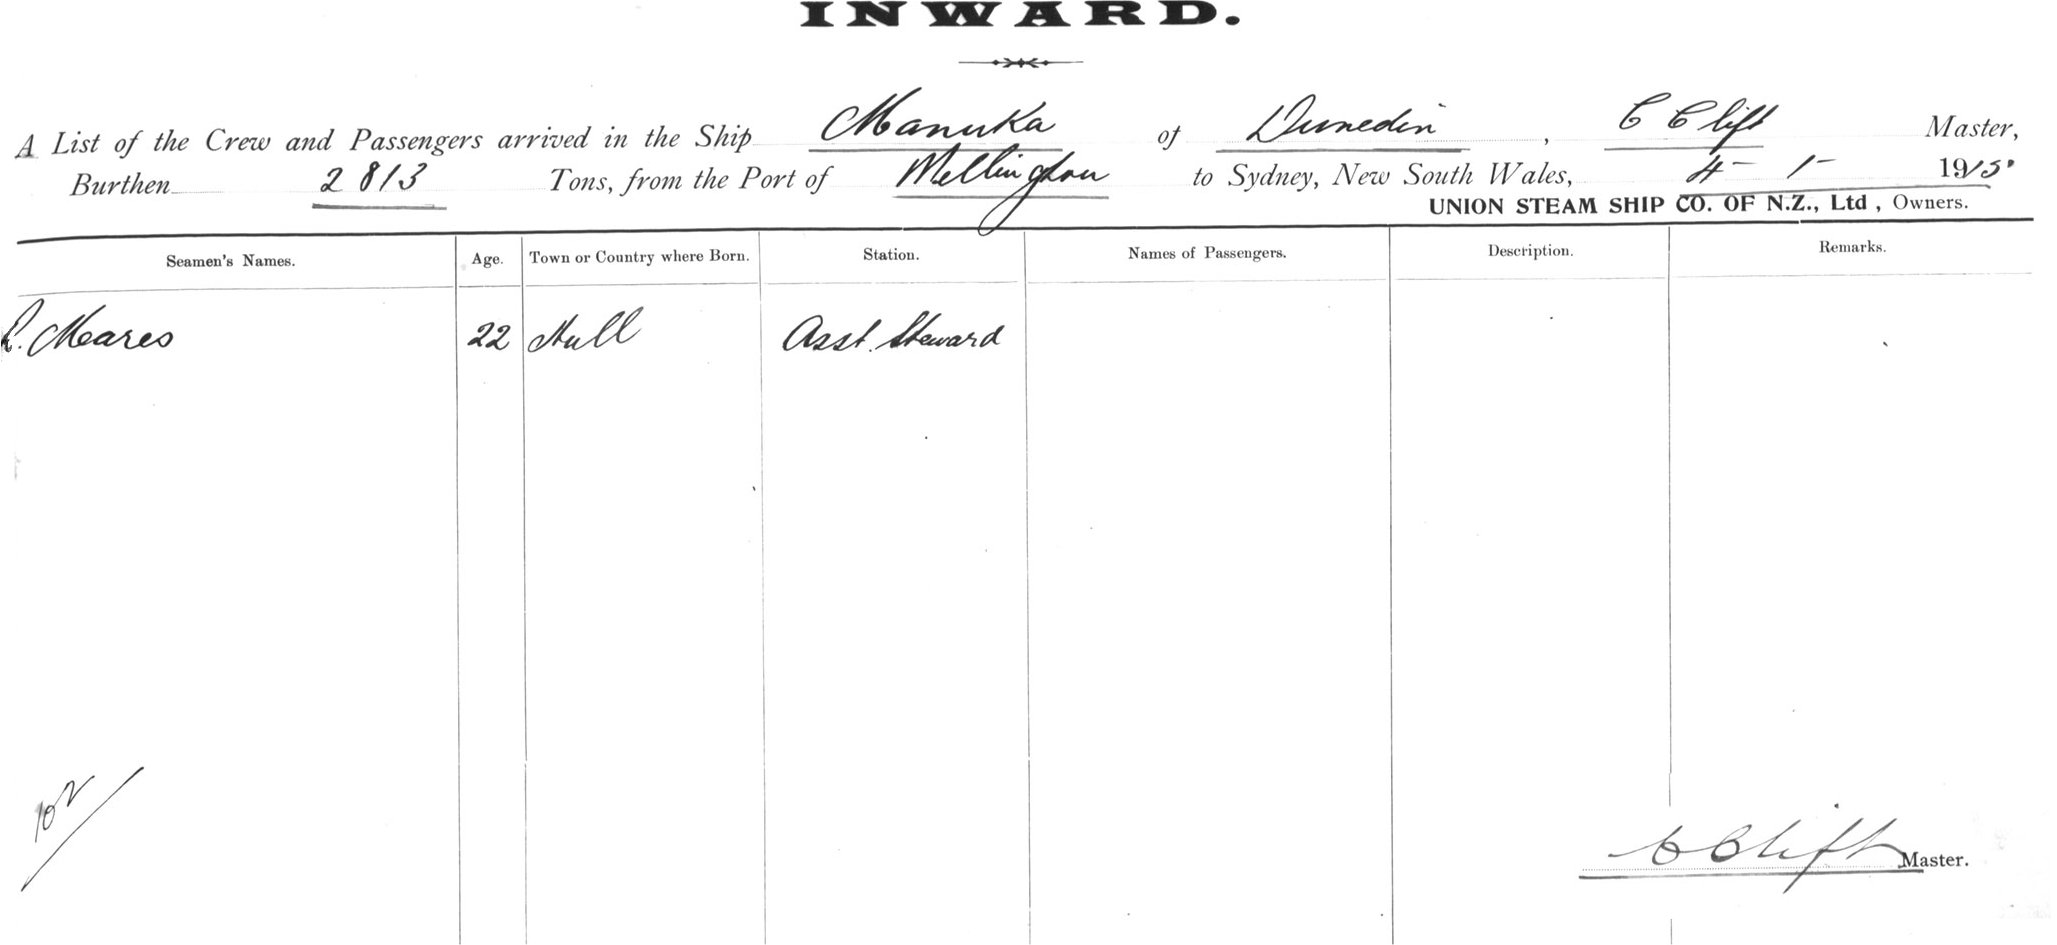 INWARD.
A List of the Crew and Passengers arrived in the Ship Manuka of Dunedin, C Clift Master,
Burthen 2813 Tons, from the Port of Wellington to Sydney, New South Wales, 4 - 1 - 1915
UNION STEAM SHIP CO. OF N.Z., Ltd, Owners.
Seamen's Names. Age. Town or Country where Born. Station. Names of Passengers. Description. Remarks.
Meares 22 Hull Asst. Steward
102
C Clift Master.